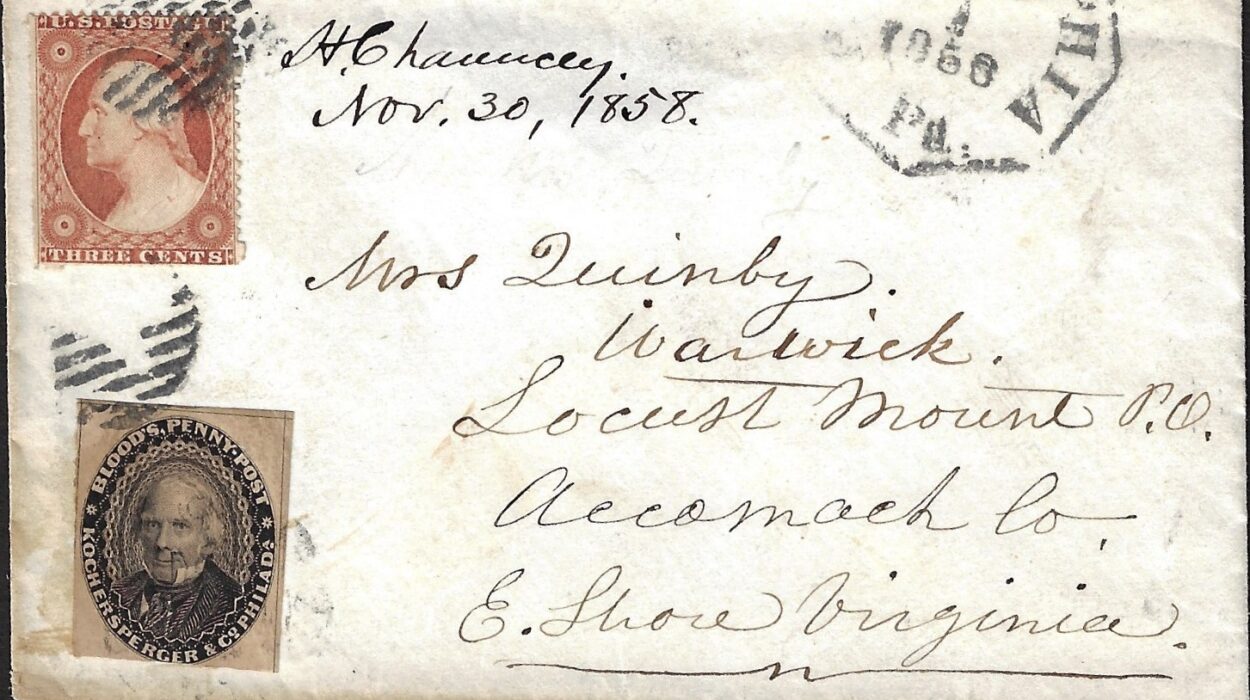 U.S. POSTAGE
THREE CENTS
H. Chauncey.
Nov. 30, 1858.
PHIA
Pa.
Mrs Quinby.
Warwick.
Locust Mount P.O.
Accomack Co.
E. Shore Virginia.
BLOOD'S. PENNY-POST
KOCHERSPERGER & CO PHILADA